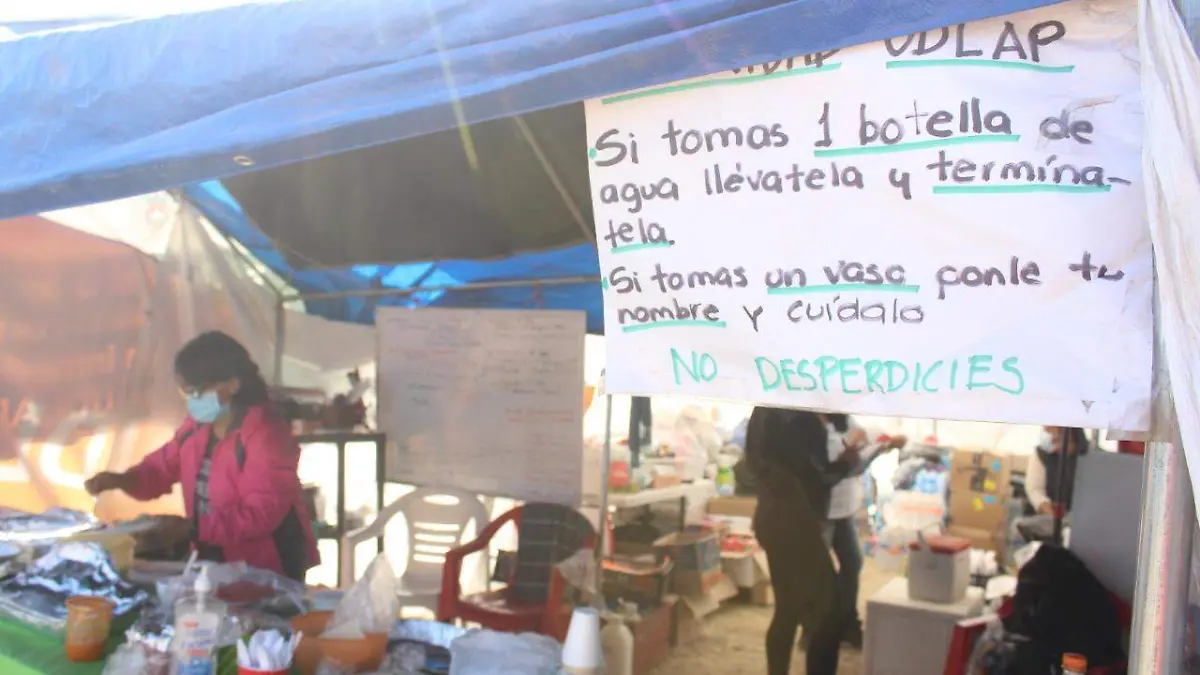 UDLAP
Si tomas 1 botella de
agua llévatela y termína-
tela.
Si tomas un vaso ponle tu
nombre y cuídalo
NO DESPERDICIES